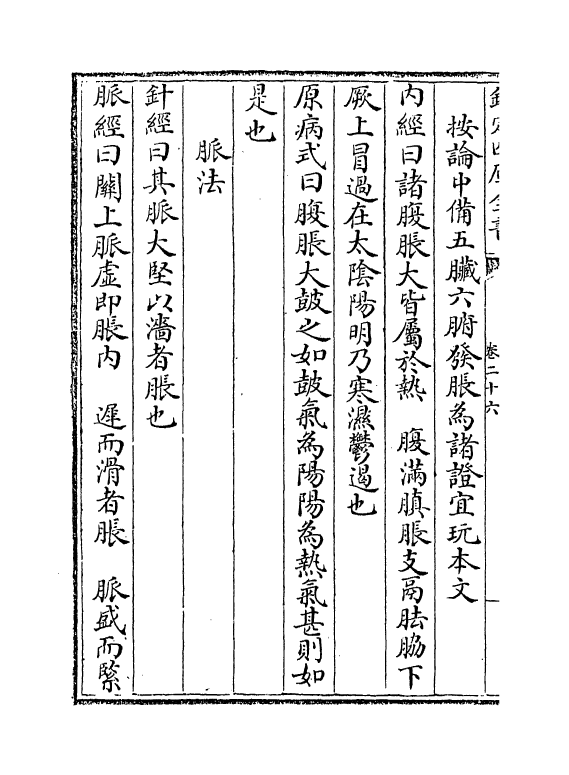 欽定四庫全書
卷二十六
按論中備五臟六腑發脹為諸證宜玩本文
內經曰諸腹脹大皆屬於熱　腹滿䐜脹支鬲胠脇下
厥上冒過在太陰陽明乃寒濕鬱遏也
原病式曰腹脹大皷之如皷氣為陽陽為熱氣甚則如
是也
脈法
針經曰其脈大堅以濇者脹也
脈經曰關上脈虛即脹內　遲而滑者脹　脈盛而緊